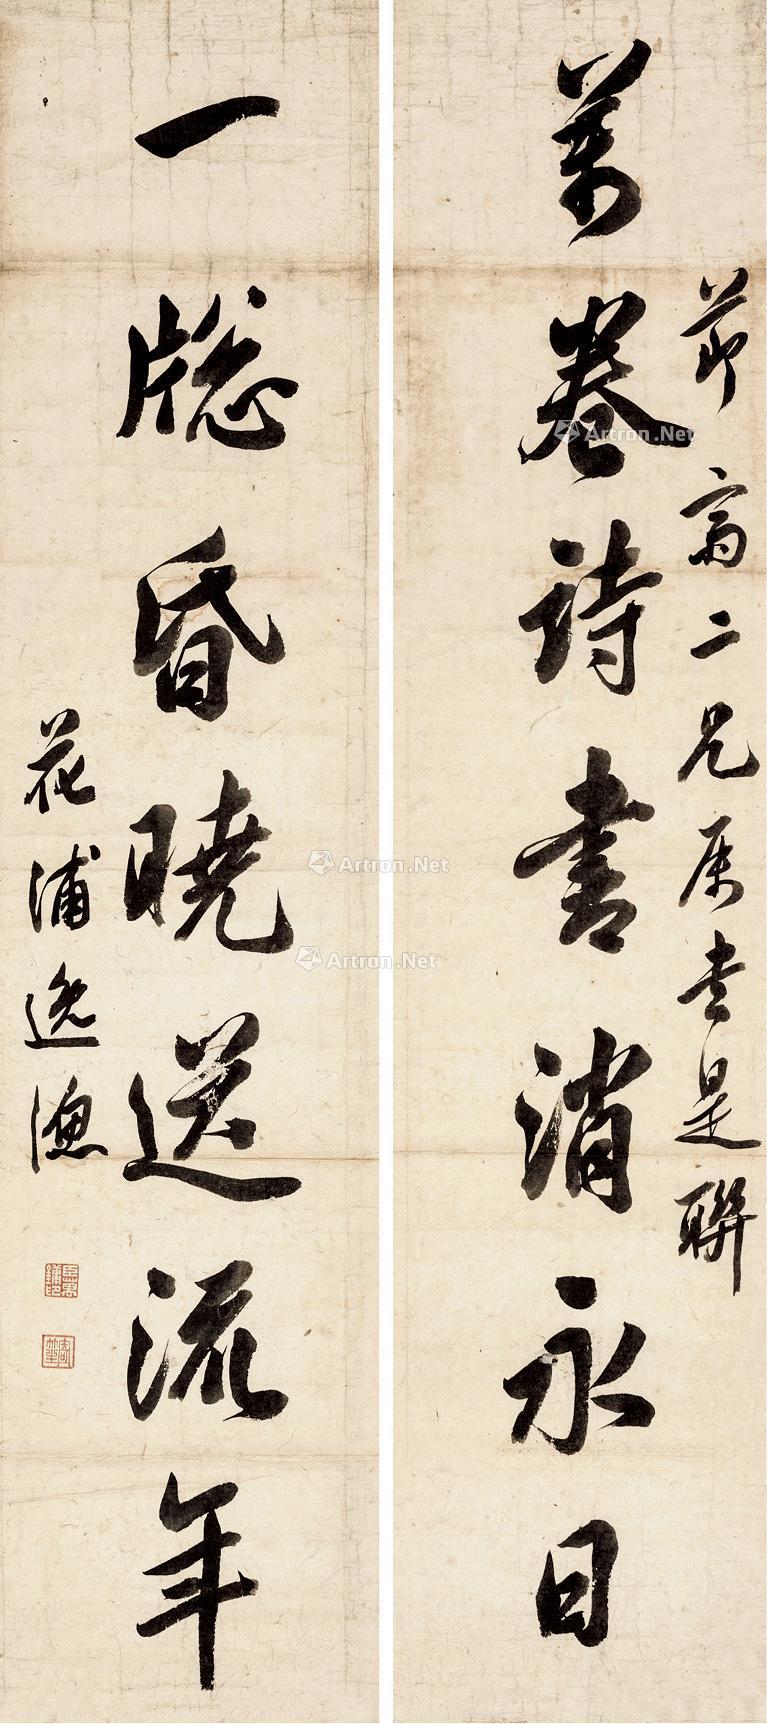 萬卷詩書消永日
節甫二兄屬書是聯
一牕昏曉送流年
花浦逸漁
Artron.Net
Artron.Net
Artron.Net